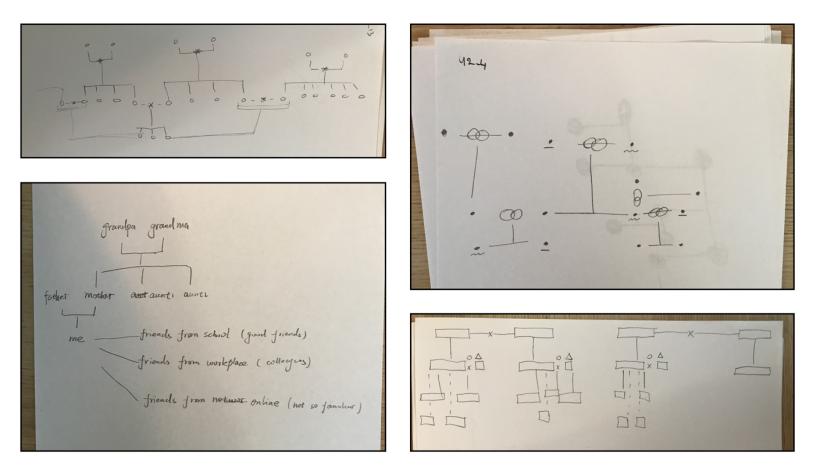 grandpa grandma
father mother aunt1 aunt2
me
friends from school (good friends)
friends from workplace (colleagues)
friends from online (not so familiar)